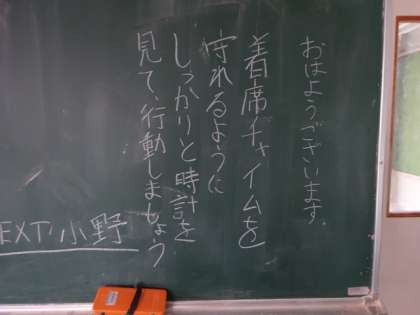 おはようございます。
着席チャイムを
守れるように
しっかりと時計を
見て、行動しましょう
EXT 小野